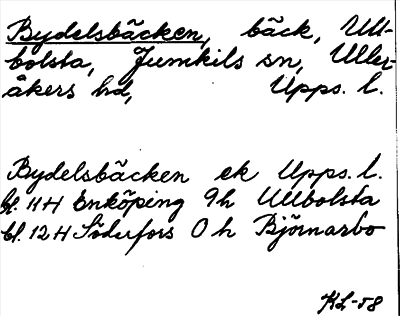 Bydelsbäcken, bäck, Ull-
bolsta, Jumkils sn, Uller-
åkers hd, Upps. l.
Bydelsbäcken ek Upps. l.
bl. 11H Enköping 9h Ullbolsta
bl. 12H Söderfors 0h Björnarbo
KL-58